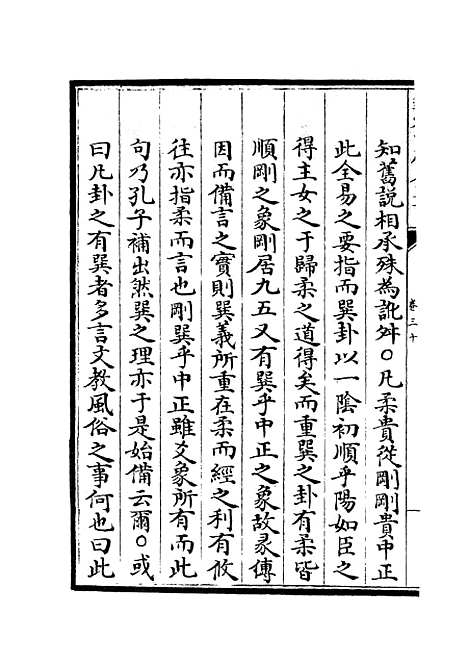 知舊說相承殊為訛舛○凡柔貴從剛剛貴中正
此全易之要指而巽卦以一陰初順乎陽如臣之
得主女之于歸柔之道得矣而重巽之卦有柔皆
順剛之象剛居九五又有巽乎中正之象故彖傳
因而備言之實則巽義所重在柔而經之利有攸
往亦指柔而言也剛巽乎中正雖爻象所有而此
句乃孔子補出然巽之理亦于是始備云爾○或
曰凡卦之有巽者多言文教風俗之事何也曰此
卷三十